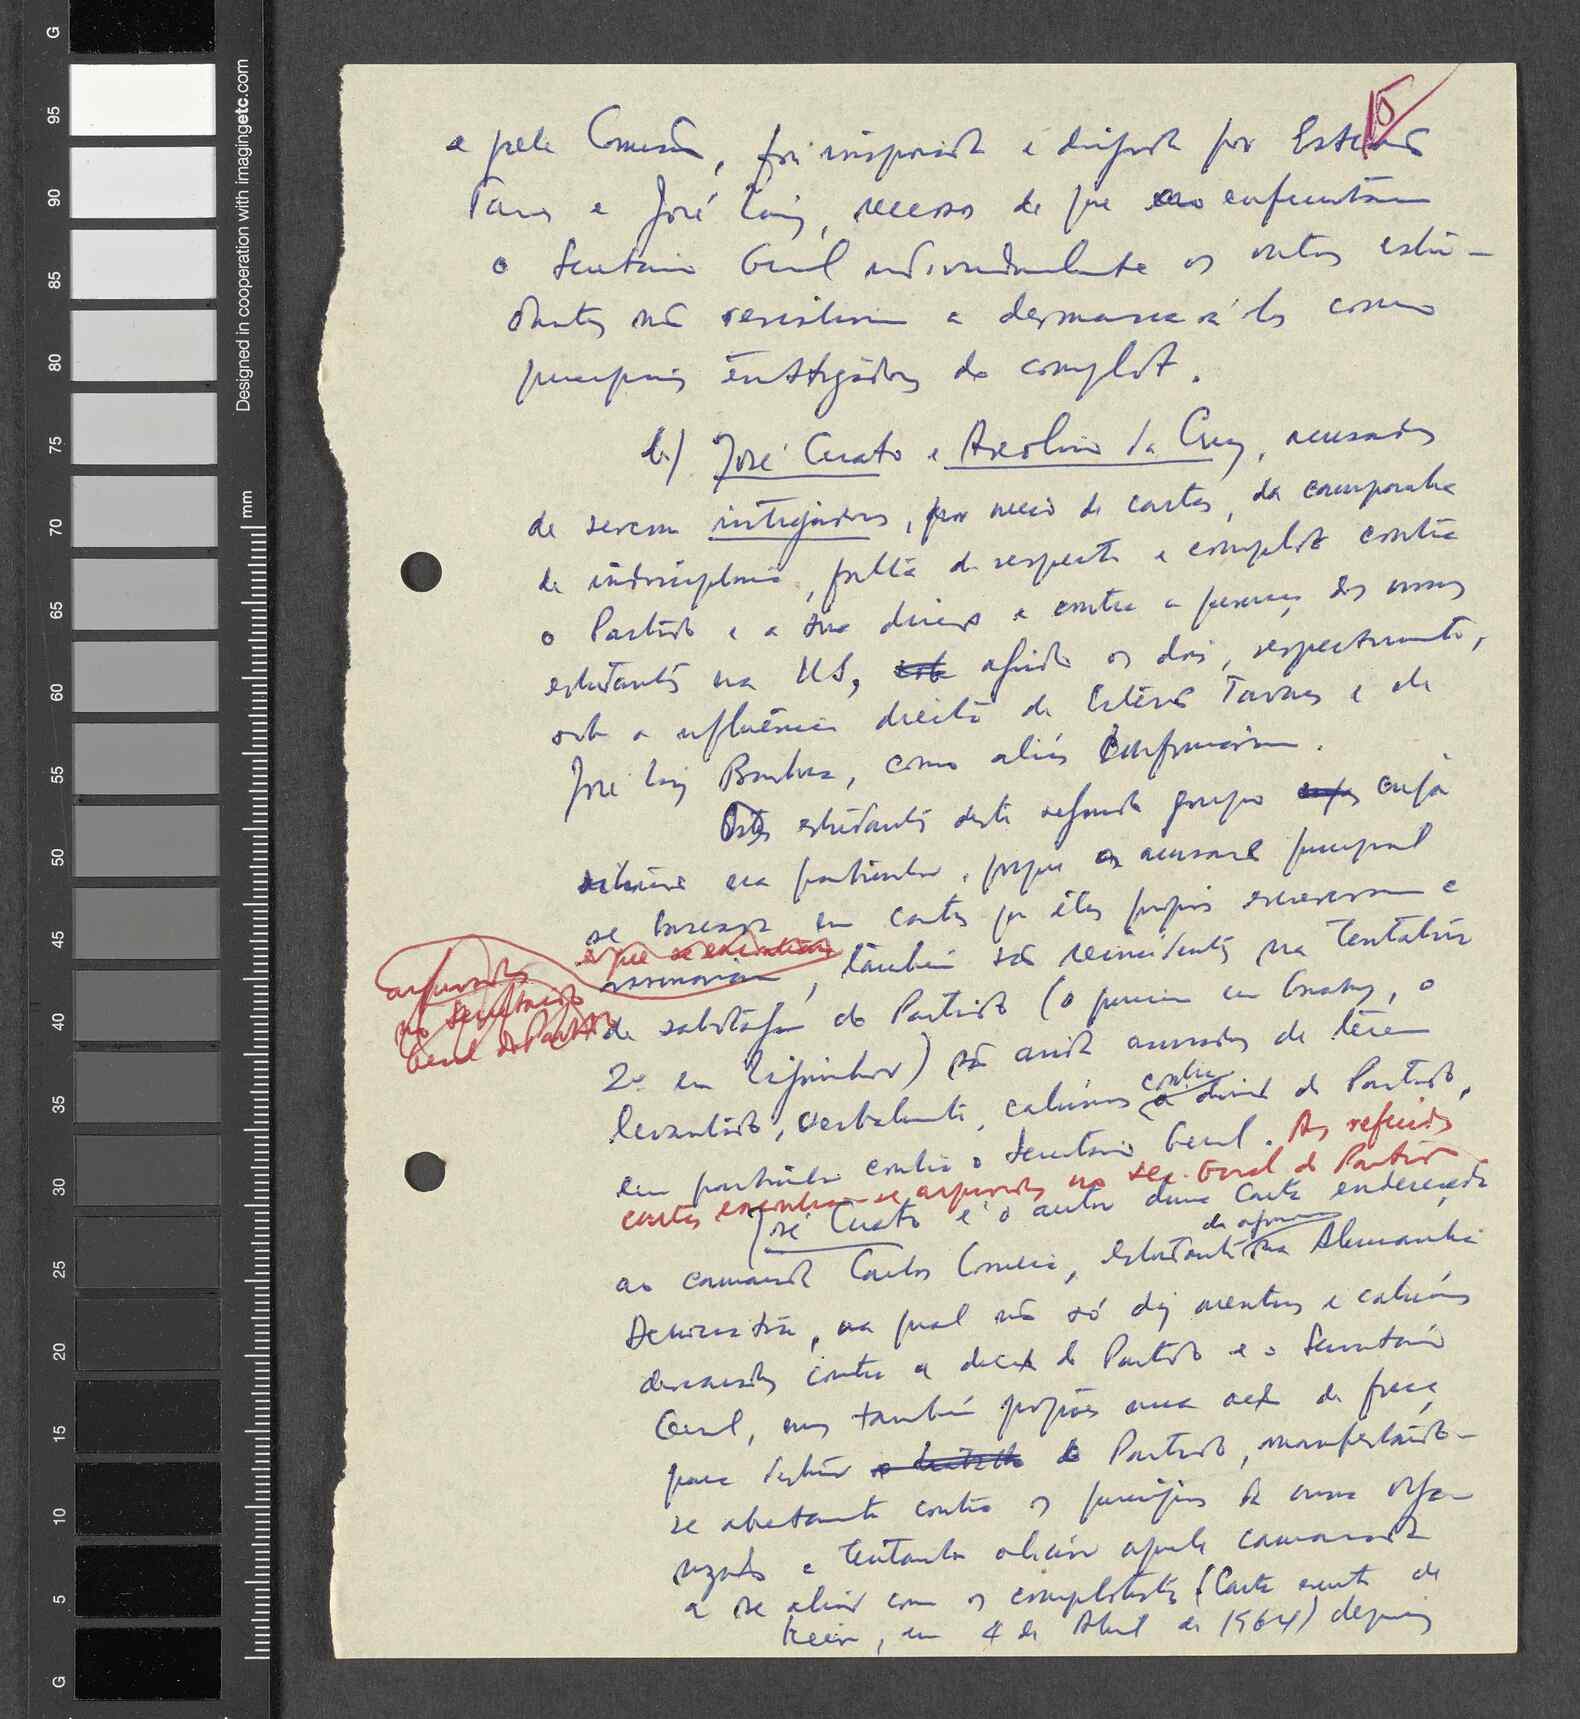 15
e pela Comissão, foi inspirada e dirigida por Estevão
Tavares e José Luis, receosos de que ao enfrentarem
o Secretário Geral individualmente os outros estu-
dantes não resistiriam a desmascará-los como
principais instigadores do complot.
b) José Curato e Ascolino da Cruz, acusados
de serem instigadores, por meio de cartas, da campanha
de indisciplina, falta de respeito e complot contra
o Partido e a sua direcção e contra a presença dos nossos
estudantes na US, agindo os dois, respectivamente,
sob a influência directa de Estevão Tavares e de
José Luis Barbosa, como aliás confirmaram.
Estes estudantes deste segundo grupo cuja
em particular, porque a acusação principal
se baseasse em cartas que eles próprios escreveram e
e que se encontram
assinaram, também são reincidentes na tentativa
arquivadas
no Secretariado
Geral do Partido
de sabotagem do Partido (o primeiro em Conakry, o
2º em Ziguinchor) são ainda acusados de terem
levantado, verbalmente, calúnias contra a direcção do Partido,
em particular contra o Secretário Geral. As referidas
cartas encontram-se arquivadas no Sec. Geral do Partido
José Curato é o autor duma carta endereçada
ao camarada Carlos Correia, estudante de agronomia na Alemanha
Democrática, na qual não só diz mentiras e calúnias
descaradas contra a direcção do Partido e o Secretário
Geral, mas também propões uma acção de força
para destruir o Partido, manifestando-
se abertamente contra os princípios da nossa orga-
nização e tentando aliciar aquele camarada
a se aliar com os complotistas (Carta escrita de
Kiev, em 4 de Abril de 1964) depois
Designed in cooperation with imagingetc.com
mm
G
95
90
85
80
75
70
65
60
55
50
45
40
35
30
25
20
15
10
5
G